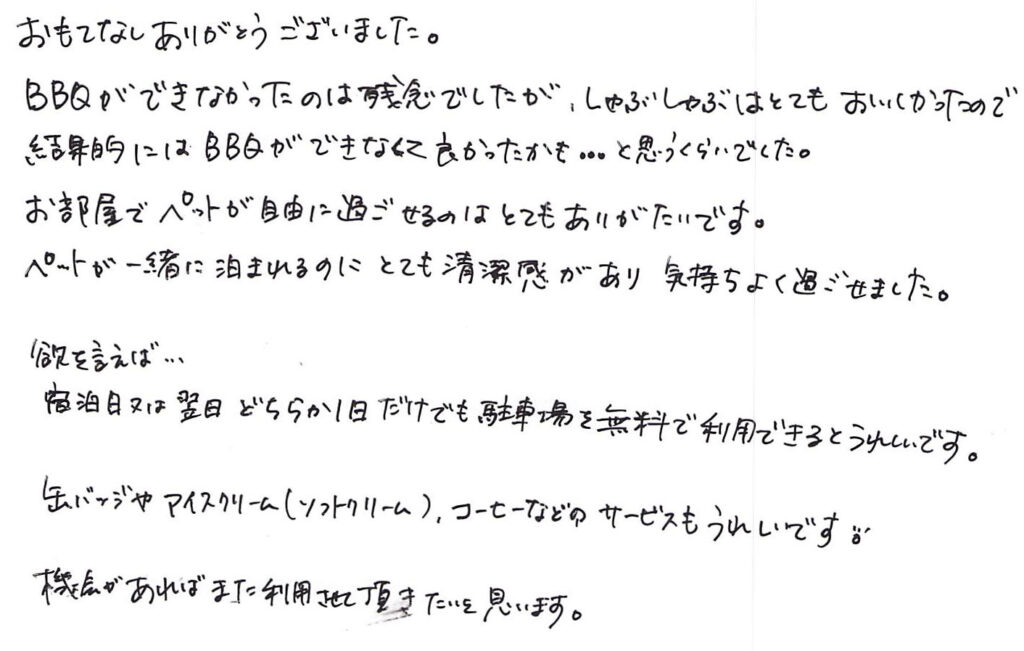 おもてなしありがとうございました。
BBQができなかったのは残念でしたが、しゃぶしゃぶはとてもおいしかったので
結果的にはBBQができなくて良かったかも…と思うくらいでした。
お部屋でペットが自由に過ごせるのはとてもありがたいです。
ペットが一緒に泊まれるのにとても清潔感があり 気持ちよく過ごせました。
欲を言えば…
宿泊日又は翌日どちらか1日だけでも駐車場を無料で利用できるとうれしいです。
缶バッジやアイスクリーム(ソフトクリーム)、コーヒーなどのサービスもうれしいです
機会があればまた利用させて頂きたいと思います。